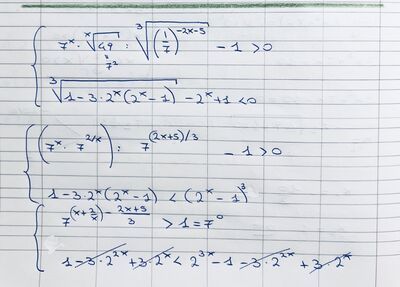 7^x · ˣ√49 : ³√((1/7)^(-2x-5)) - 1 > 0
7²
³√(1 - 3 · 2^x (2^x - 1)) - 2^x + 1 < 0
(7^x · 7^(2/x)) : 7^((2x+5)/3) - 1 > 0
1 - 3 · 2^x (2^x - 1) < (2^x - 1)³
7^((x + 2/x) - (2x+5)/3) > 1 = 7⁰
1 - 3 · 2^(2x) + 3 · 2^x < 2^(3x) - 1 - 3 · 2^(2x) + 3 · 2^x